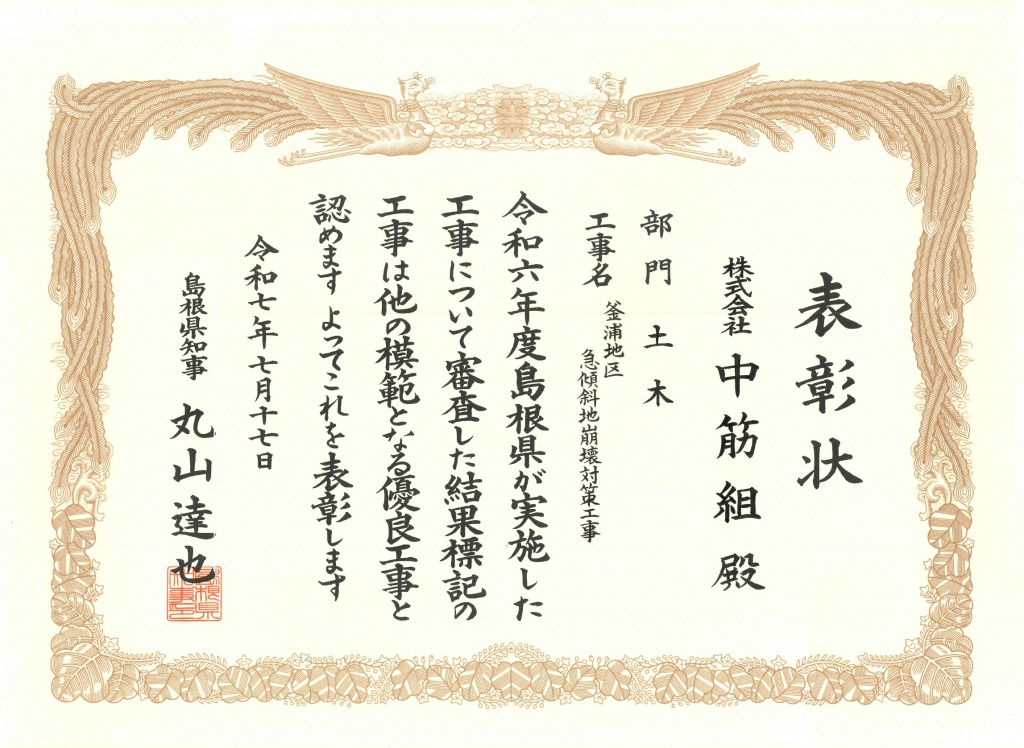 表彰状
株式会社 中筋組 殿
部門 土木
工事名 釜浦地区
急傾斜地崩壊対策工事
令和六年度島根県が実施した
工事について審査した結果標記の
工事は他の模範となる優良工事と
認めます よってこれを表彰します
令和七年七月十七日
島根県知事 丸山達也
島根県知事印